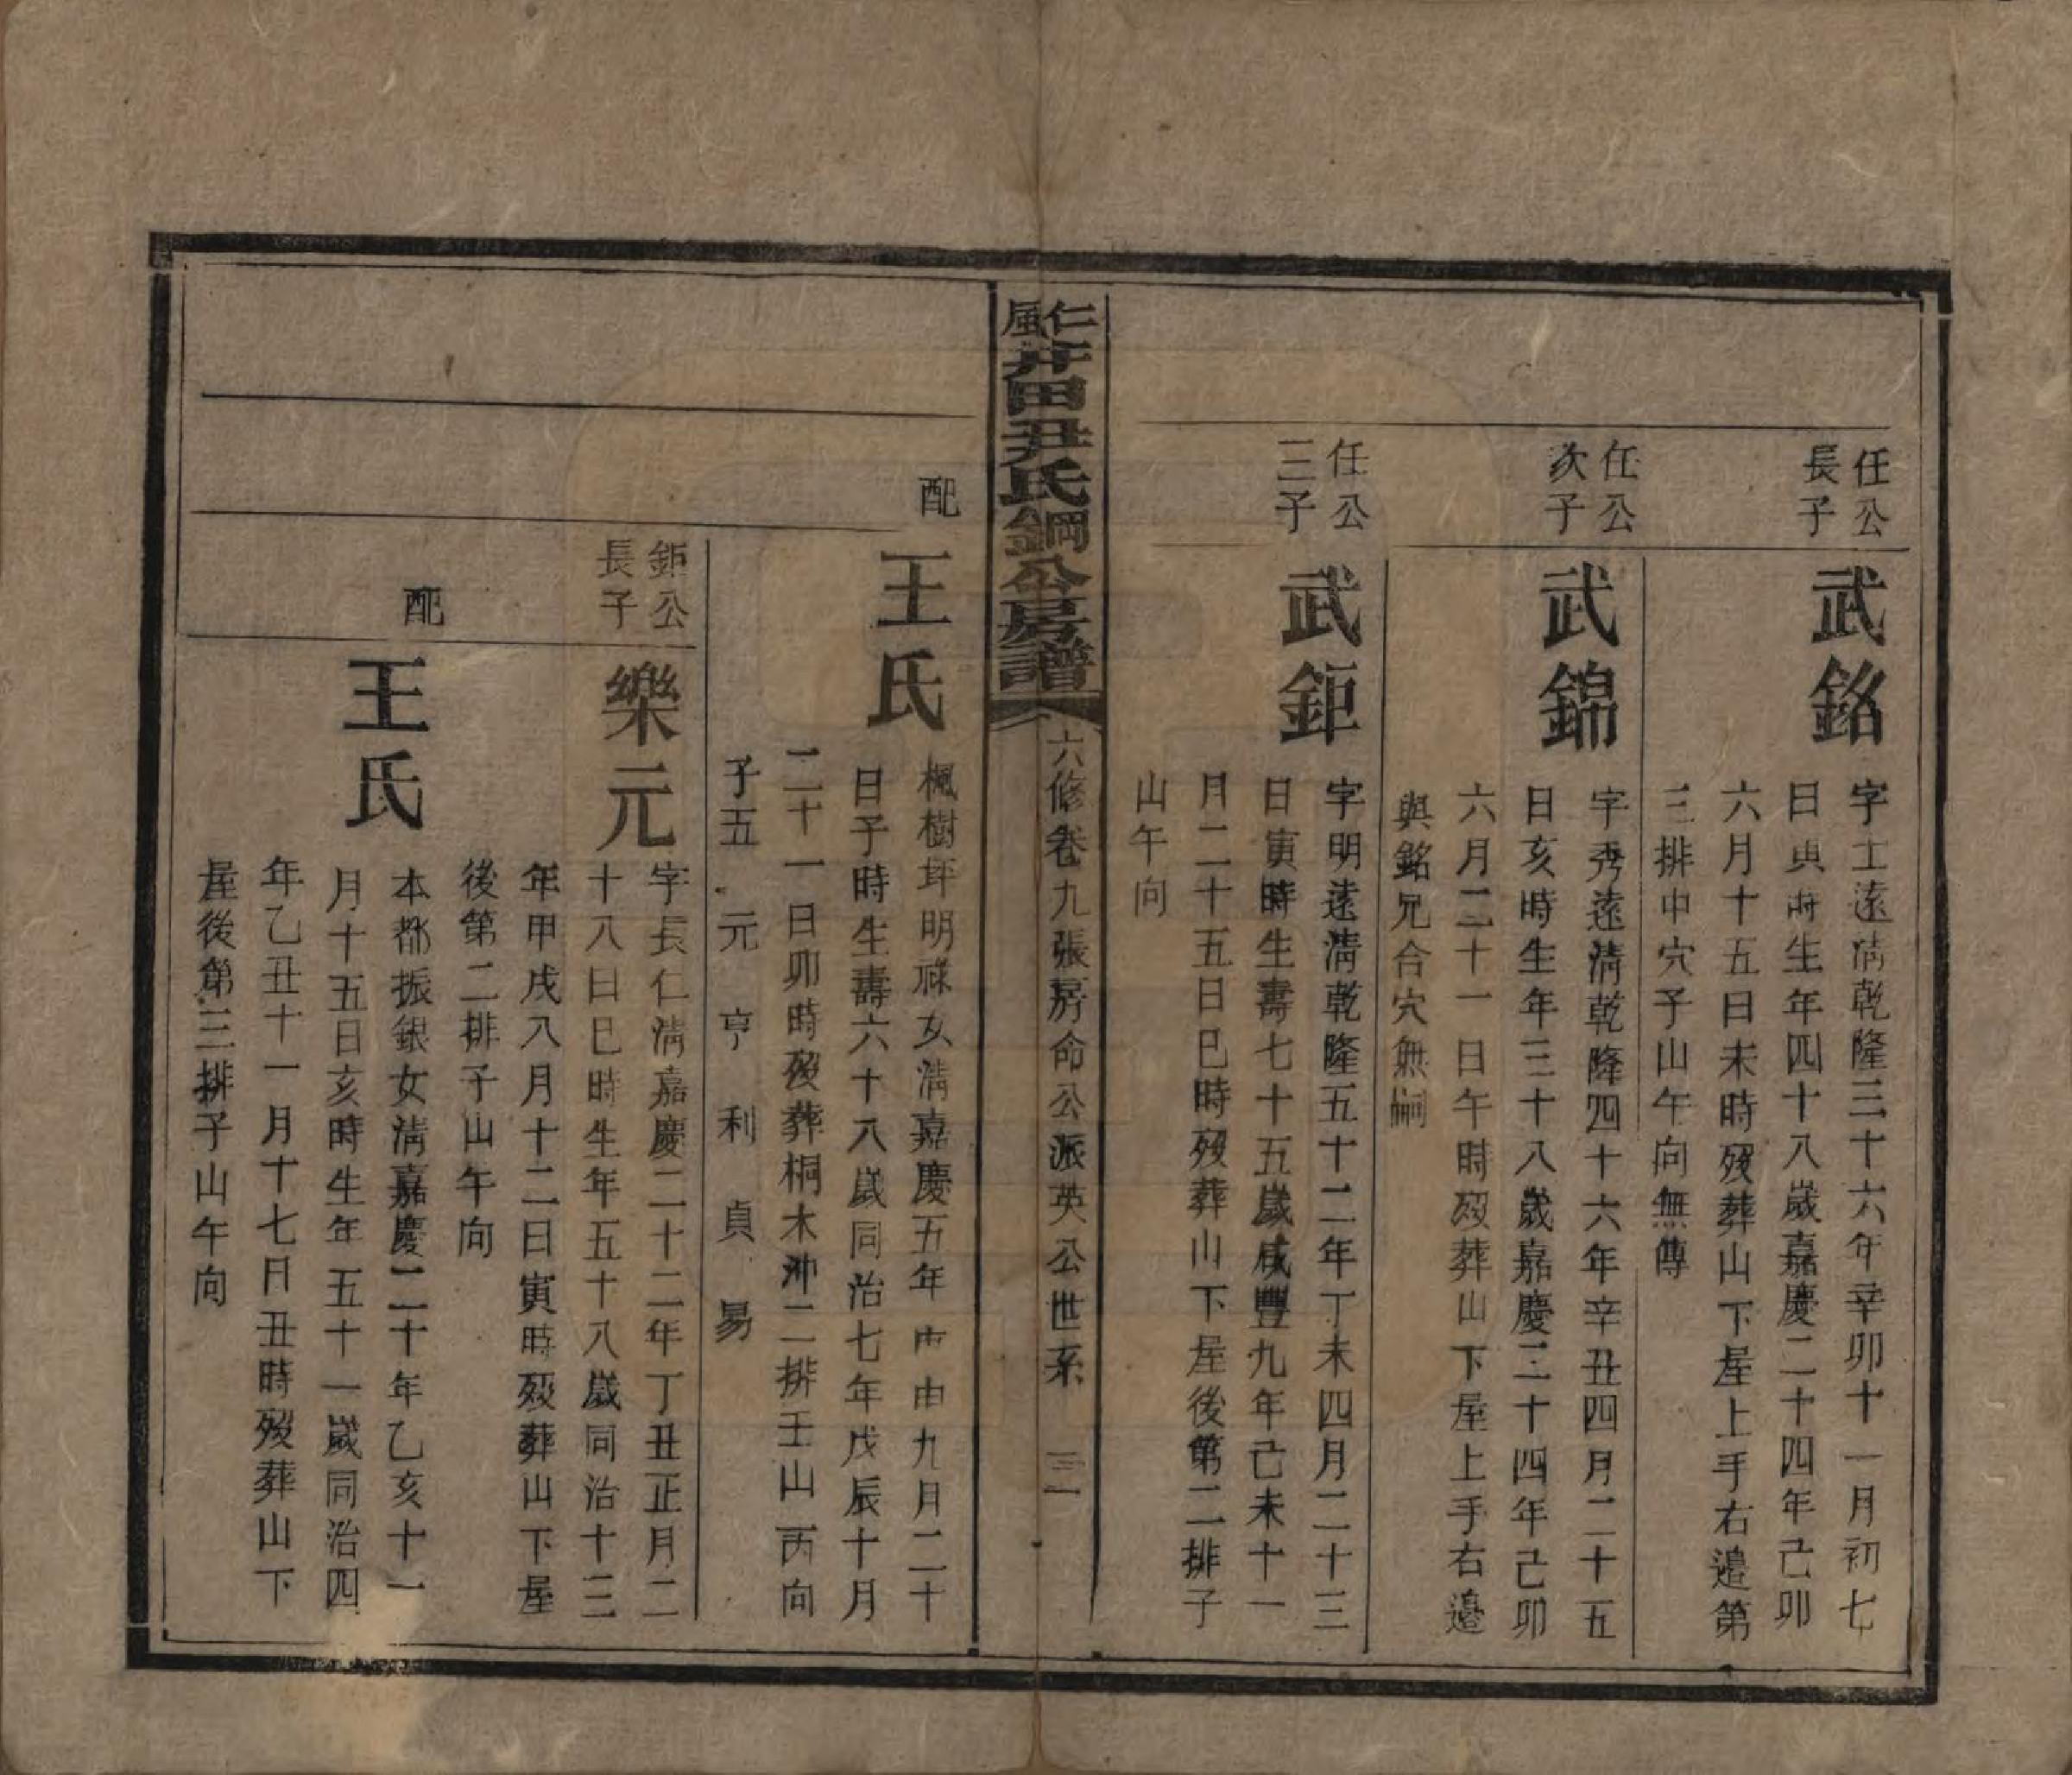 任公
長子
武銘
字士遠清乾隆三十六年辛卯十一月初七
日寅時生年四十八歲嘉慶二十四年己卯
六月十五日未時歿葬山下屋上手右邉第
三排中穴子山午向無傳
任公
次子
武錦
字秀遠清乾隆四十六年辛丑四月二十五
日亥時生年三十八歲嘉慶二十四年己卯
六月二十一日午時歿葬山下屋上手右邉
與銘兄合穴無嗣
任公
三子
武鉅
字明遠清乾隆五十二年丁未四月二十三
日寅時生壽七十五歲咸豐九年己未十一
月二十五日巳時歿葬山下屋後第二排子
山午向
仁風井田尹氏鋼公房譜
六修卷九張房命公派英公世系 三一
配
王氏
楓樹坪明祿女清嘉慶五年 申九月二十
日子時生壽六十八歲同治七年戊辰十月
二十一日卯時歿葬桐木冲二排壬山丙向
子五 元 亨 利 貞 易
鉅公
長子
樂元
字長仁清嘉慶二十二年丁丑正月二
十八日巳時生年五十八歲同治十三
年甲戌八月十二日寅時歿葬山下屋
後第二排子山午向
配
王氏
本都振銀女清嘉慶二十年乙亥十一
月十五日亥時生年五十一歲同治四
年乙丑十一月十七日丑時歿葬山下
屋後第三排子山午向